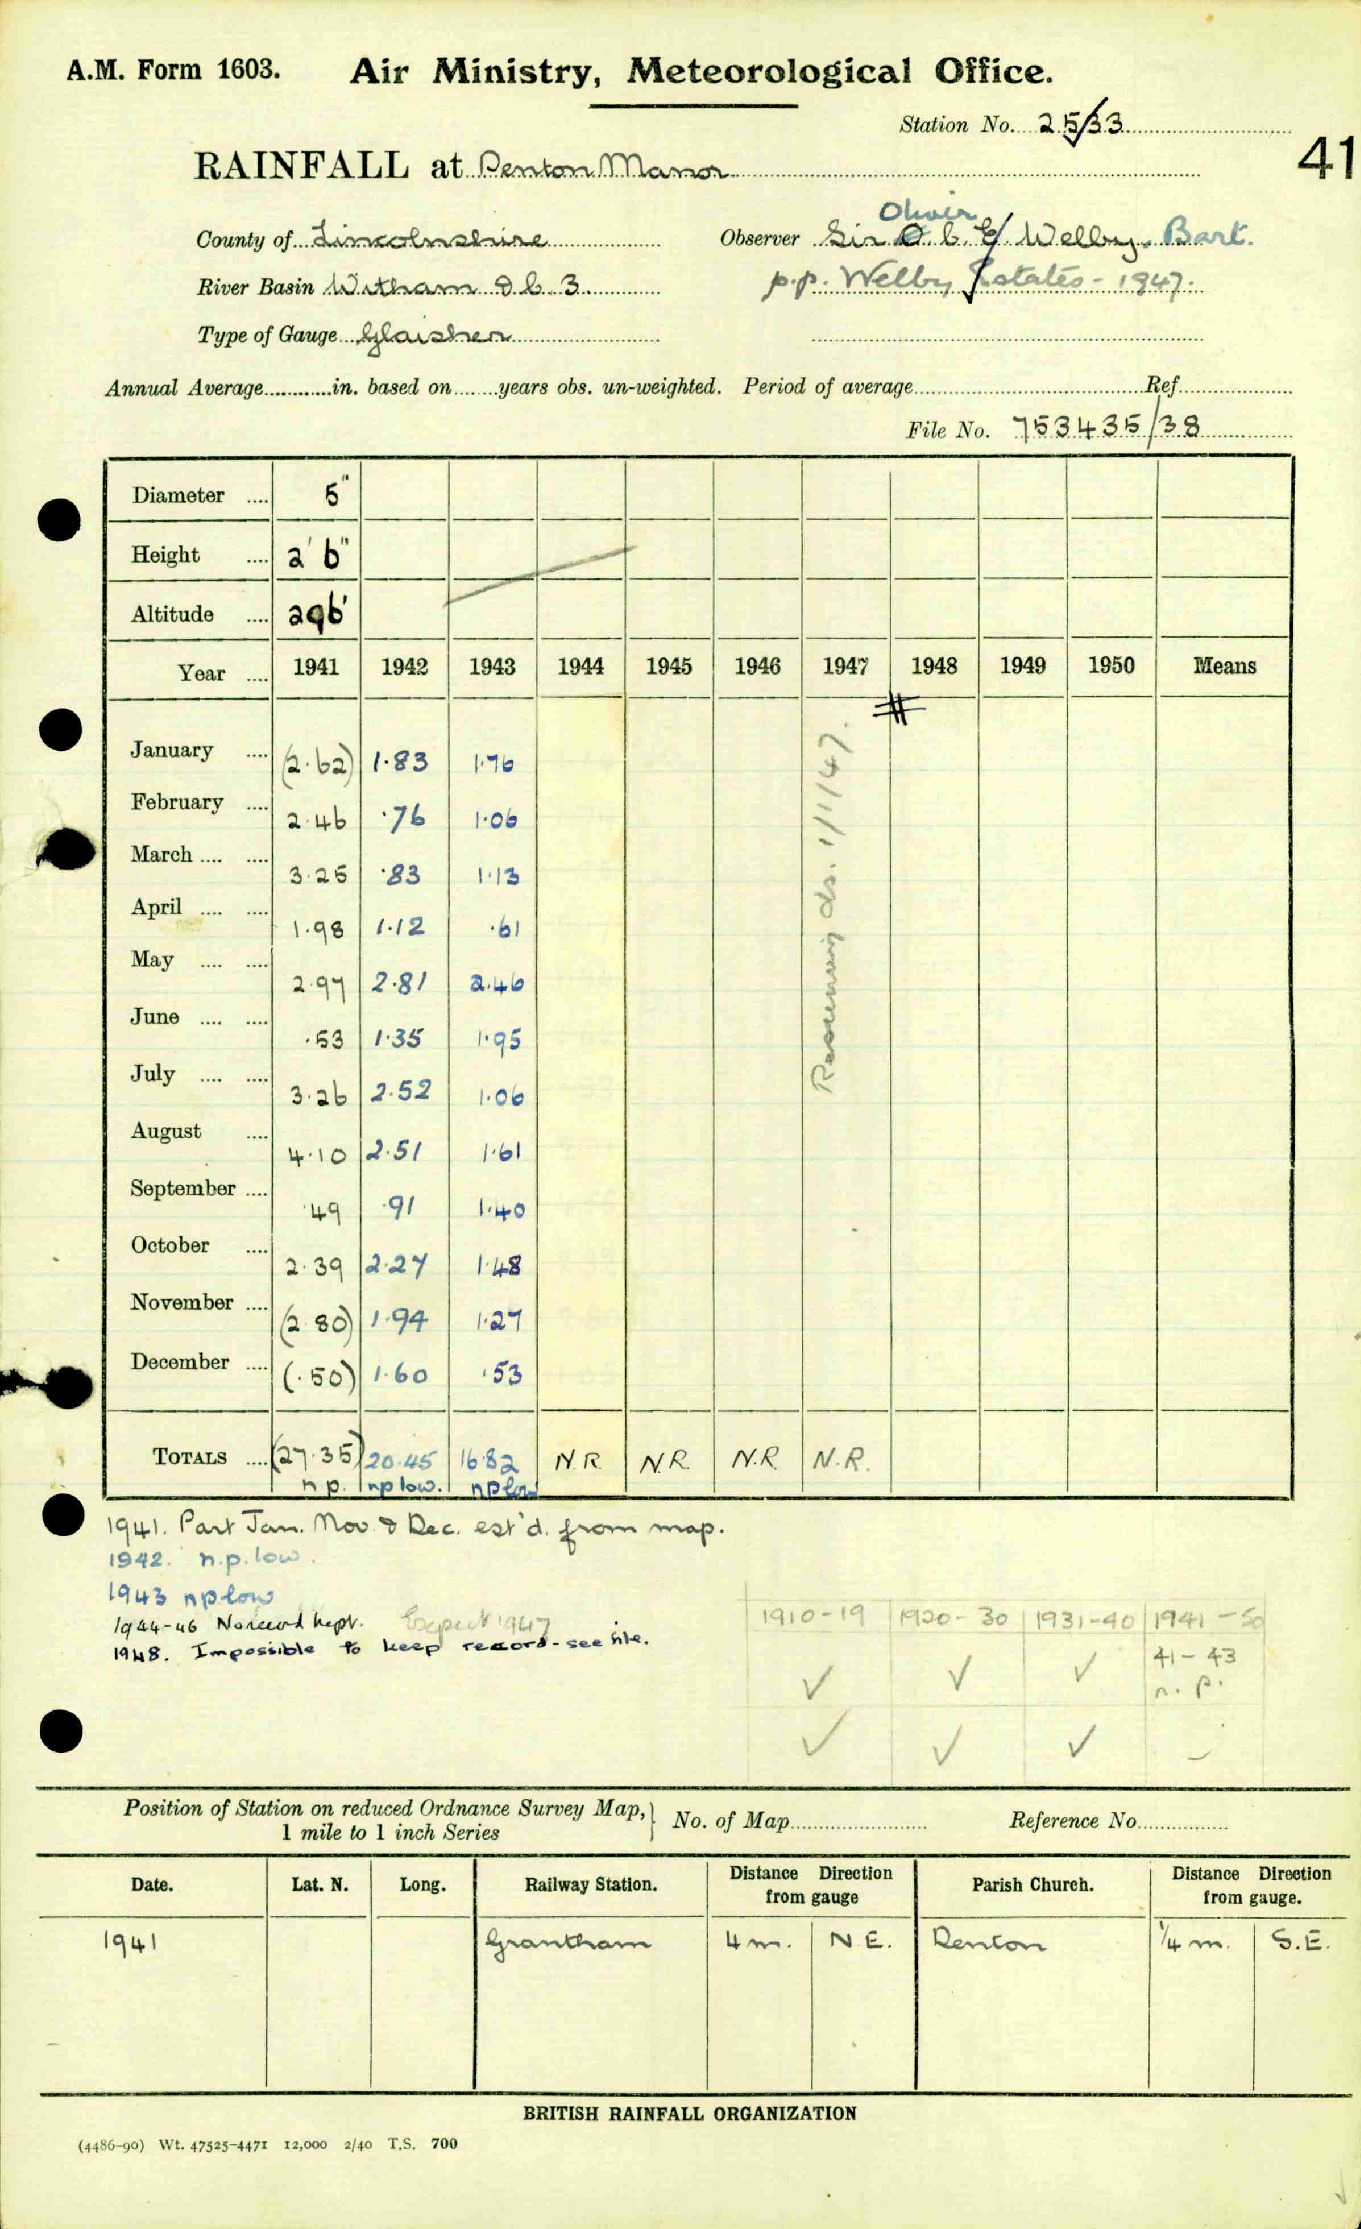 A.M. Form 1603. Air Ministry, Meteorological Office.
Station No. 25/33
41
RAINFALL at Denton Manor
Oliver
County of Lincolnshire Observer Sir O. C. E. Welby, Bart.
River Basin Witham & C. 3. p.p. Welby Estates - 1947.
Type of Gauge Glaisher
Annual Average in. based on years obs. un-weighted. Period of average Ref
File No. 753435/38
Diameter .... 5"
Height .... 2' 6"
Altitude .... 296'
Year .... 1941 1942 1943 1944 1945 1946 1947 1948 1949 1950 Means
January .... (2.62) 1.83 1.76
February .... 2.46 .76 1.06
March .... .... 3.25 .83 1.13
April .... .... 1.98 1.12 .61
May .... .... 2.97 2.81 2.46
June .... .... .53 1.35 1.95
July .... .... 3.26 2.52 1.06
August .... 4.10 2.51 1.61
September .... .49 .91 1.40
October .... 2.39 2.27 1.48
November .... (2.80) 1.94 1.27
December .... (.50) 1.60 .53
Resuming obs. 1/1/47.
TOTALS .... (27.35) 20.45 16.82 N.R. N.R. N.R. N.R.
n p. np low. np low
1941. Part Jan. Nov & Dec. est'd. from map.
1942. n.p. low.
1943 np low
1944-46 No record kept. Expect 1947
1948. Impossible to keep record - see file.
1910-19 1920-30 1931-40 1941-50
✓ ✓ ✓ 41-43
n. p.
✓ ✓ ✓ –
Position of Station on reduced Ordnance Survey Map,
1 mile to 1 inch Series } No. of Map Reference No.
Date. Lat. N. Long. Railway Station. Distance Direction from gauge Parish Church. Distance Direction from gauge.
1941 Grantham 4 m. N.E. Denton ¼ m. S.E.
BRITISH RAINFALL ORGANIZATION
(4486-90) Wt. 47525-4471 12,000 2/40 T.S. 700